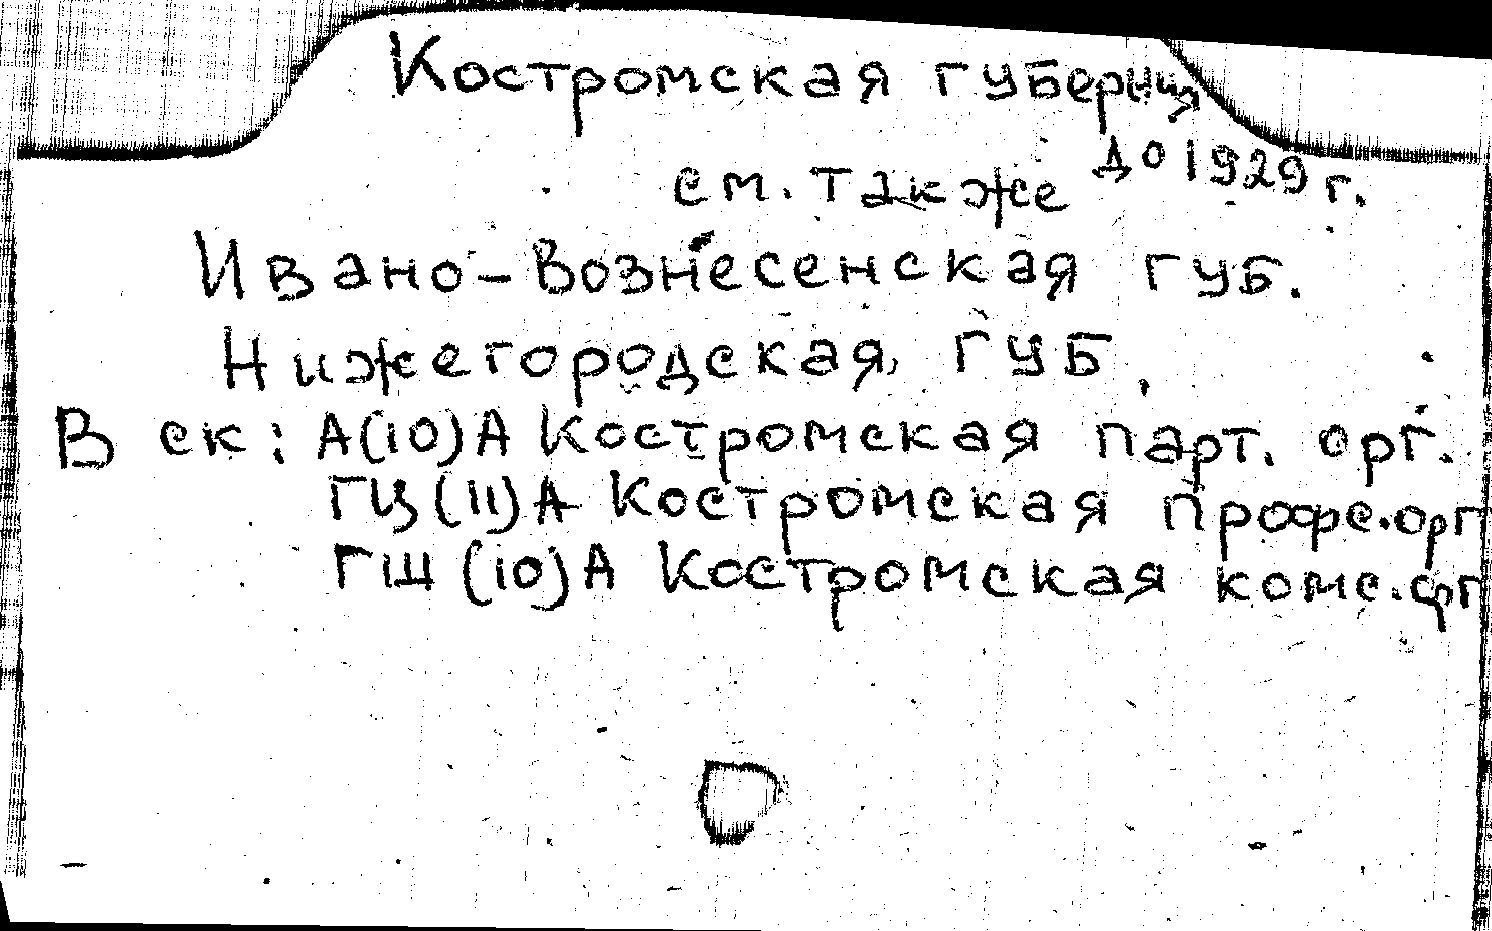 Костромская губерния
до 1929 г.
см. также
Ивано-Вознесенская губ.
Нижегородская губ.
В ск: А(10)А Костромская парт. орг.
ГЦ(11)А Костромская профс.орг
ГШ(10)А Костромская комс.орг